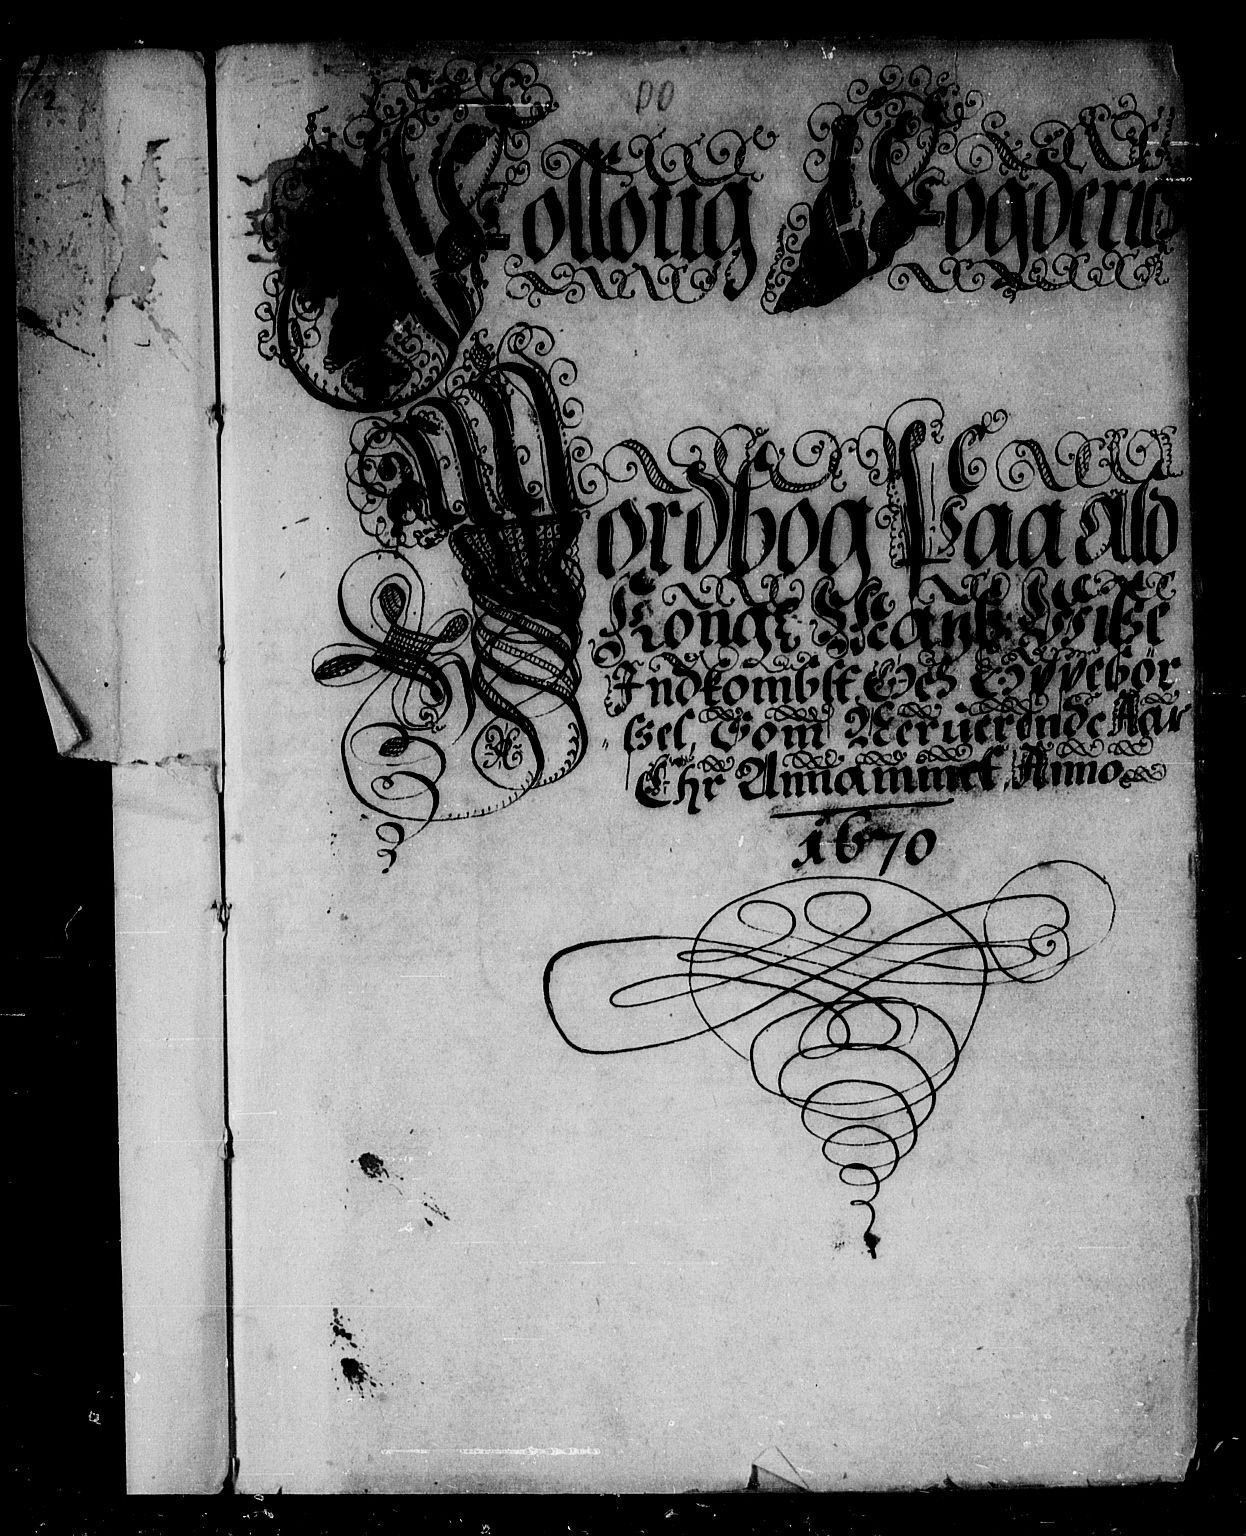 DD
Follong Fogderies
Jordbog Paa ald
Kongl: Mayts Wisse
Indkombst Och Oppebör
sel, Som Nerverende Aar
Ehr Annammet Anno
1670
2